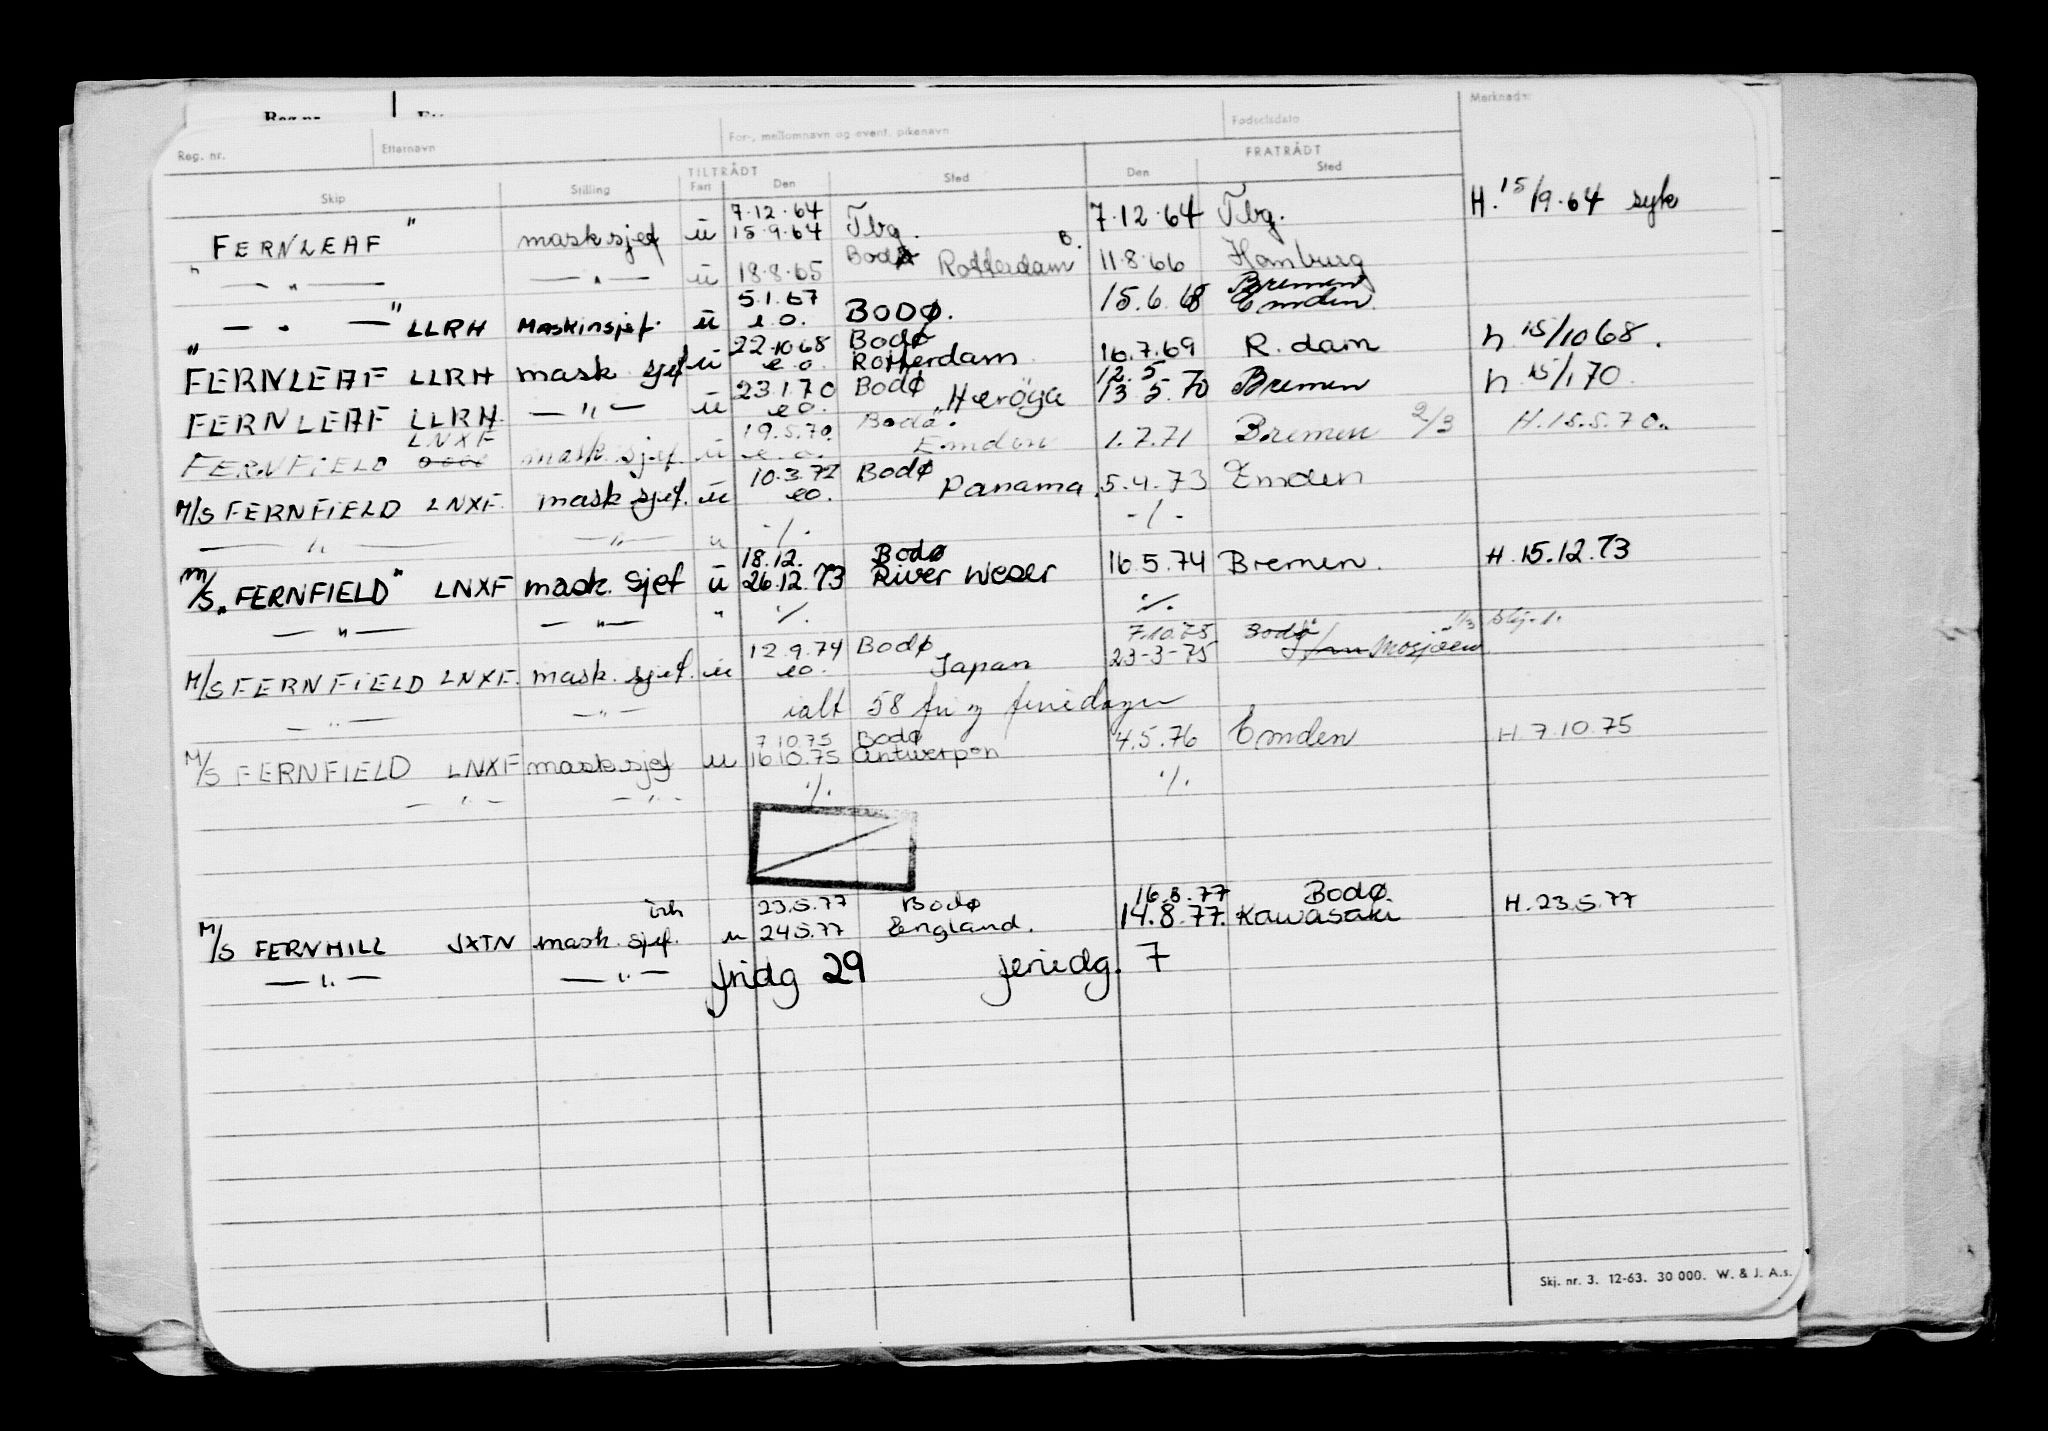 Reg. nr. Etternavn For-, mellomnavn og event. pikenavn Fødselsdato Merknader
TILTRÅDT FRATRÅDT
Skip Stilling Fart Den Sted Den Sted
7.12.64
"FERNLEAF" masksjef u 15.9.64 Tbg. 7.12.64 Tbg. H. 15/9.64 syk
— " — — " — u 18.8.65 Bodø Rotterdam B. 11.8.66 Hamburg
5.1.67 Bremen
" — " — " LLRH Maskinsjef. u e.o. BODØ. 15.6.68 Emden.
22.10.68 Bodø
FERNLEAF LLRH mask sjef u e.o. Rotterdam 16.7.69 R.dam h 15/10 68.
23.1.70 Bodø 12.5
FERNLEAF LLRH. — " — u e.o. Herøya 13.5.70 Bremen h 15/1 70.
LNXF 19.5.70. Bodø.
FERNFIELD mask. sjef. u e.o. Emden 1.7.71 Bremen 2/3 H.15.5.70.
10.3.72 Bodø
M/S FERNFIELD LNXF. mask sjef. u eo. Panama. 5.4.73 Emden
— " — — " — u -/. -/-
18.12. Bodø
M/S "FERNFIELD" LNXF mask. sjef u 26.12.73 River Weser 16.5.74 Bremen. H.15.12.73
— " — — " — " ./. ./.
12.9.74 Bodø 7.10.75 Bodø
M/S FERNFIELD LNXF. mask. sjef. u eo. Japan 23-3-75 Mosjøen
— " — — " — ialt 58 fri og feriedager
7.10.75 Bodø
M/S FERNFIELD LNXF mask sjef u 16.10.75 Antwerpen 4.5.76 Emden H.7.10.75
— " — — " — ./. ./.
23.5.77 Bodø 16.8.77 Bodø.
M/S FERNHILL JXTN mask. sjef. u 24.5.77 England. 14.8.77. Kawasaki H.23.5.77
— " — — " — fridg 29 feriedg. 7
Skj. nr. 3. 12-63. 30 000. W. & J. A.s.